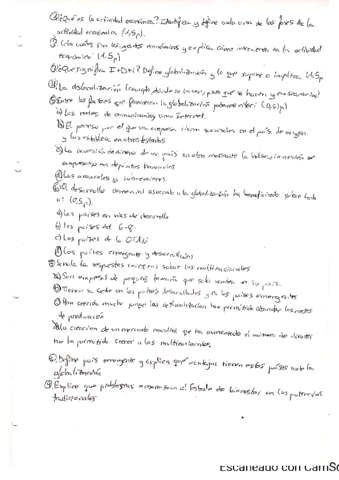 ① ¿Qué es la actividad económica? Identifica y define cada una de las fases de la
actividad económica. (1,5p)
② Cita cuáles son los agentes económicos y explica cómo intervienen en la actividad
económica: (1,5p)
③ ¿Qué significa I+D+i? Define globalización y lo que supone o implica. (1,5p
④ La deslocalización (
⑤ Entre los factores que favorecen la globalización podemos citar: (0,5p)
a) Las redes de comunicaciones como Internet.
b) El proceso por el que una empresa cierra sucursales en el país de origen
y las establece en otros Estados
c) La inversión de dinero de un país en otro mediante la
empresas o en depósitos financieros
d) Los aranceles y subvenciones.
⑥ El desarrollo comercial asociado a la globalización ha beneficiado sobre todo
a: (0,5p).
a) Los países en vías de desarrollo
b) Los países del G-8.
c) Los países de la OTAN
d) Los países emergentes y desarrollados
Señala la respuesta correcta sobre las multinacionales
a) Son empresas de pequeño tamaño que solo venden en su país.
b) Tienen su sede en los países desarrollados y en los países emergentes
c) Han crecido mucho porque la deslocalización ha permitido abaratar los costes
de producción
d) La creación de un mercado mundial que ha aumentado el número de clientes
ha permitido crecer a las multinacionales.
Define país emergente y explica qué ventajas tienen estos países ante la
globalización
Explica que problemas amenazan al Estado de bienestar en las potencias
tradicionales
Escaneado con CamSc